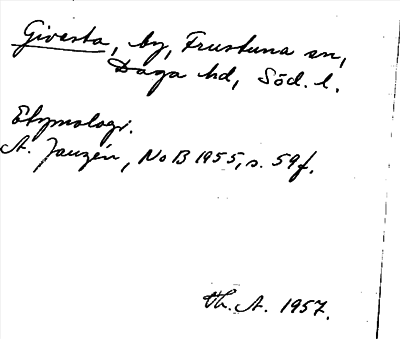 Givesta, by, Frustuna sn,
Daga hd, Söd. l.
Etymologi.
A. Janzén, NoB 1955, s. 59 f.
Th. A. 1957.